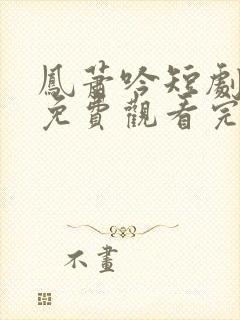 鳳蕭吟短劇
免費觀看完
不畫